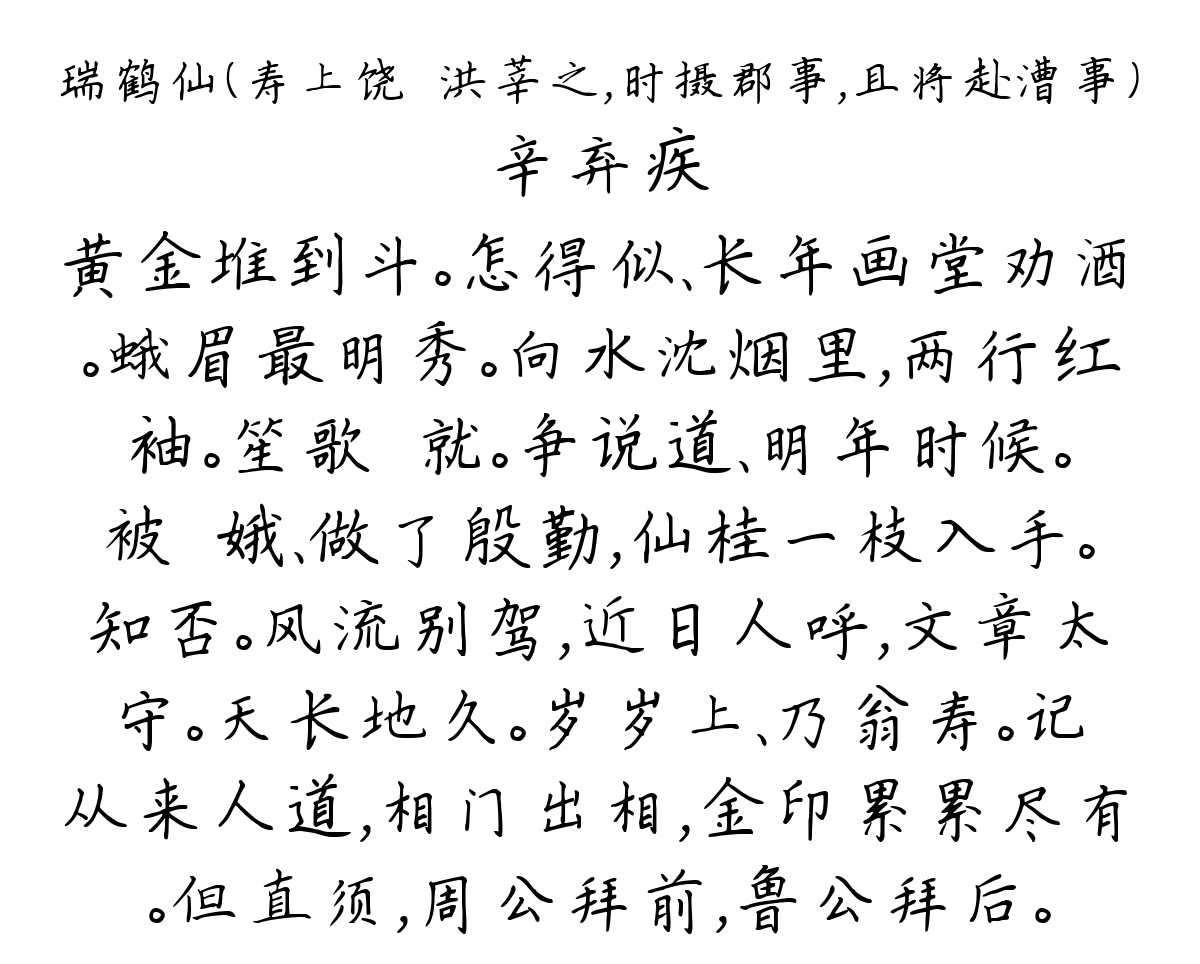 瑞鹤仙(寿上饶 洪莘之,时摄郡事,且将赴漕事)
辛弃疾
黄金堆到斗。怎得似、长年画堂劝酒
。蛾眉最明秀。向水沈烟里,两行红
袖。笙歌 就。争说道、明年时候。
被 娥、做了殷勤,仙桂一枝入手。
知否。风流别驾,近日人呼,文章太
守。天长地久。岁岁上、乃翁寿。记
从来人道,相门出相,金印累累尽有
。但直须,周公拜前,鲁公拜后。